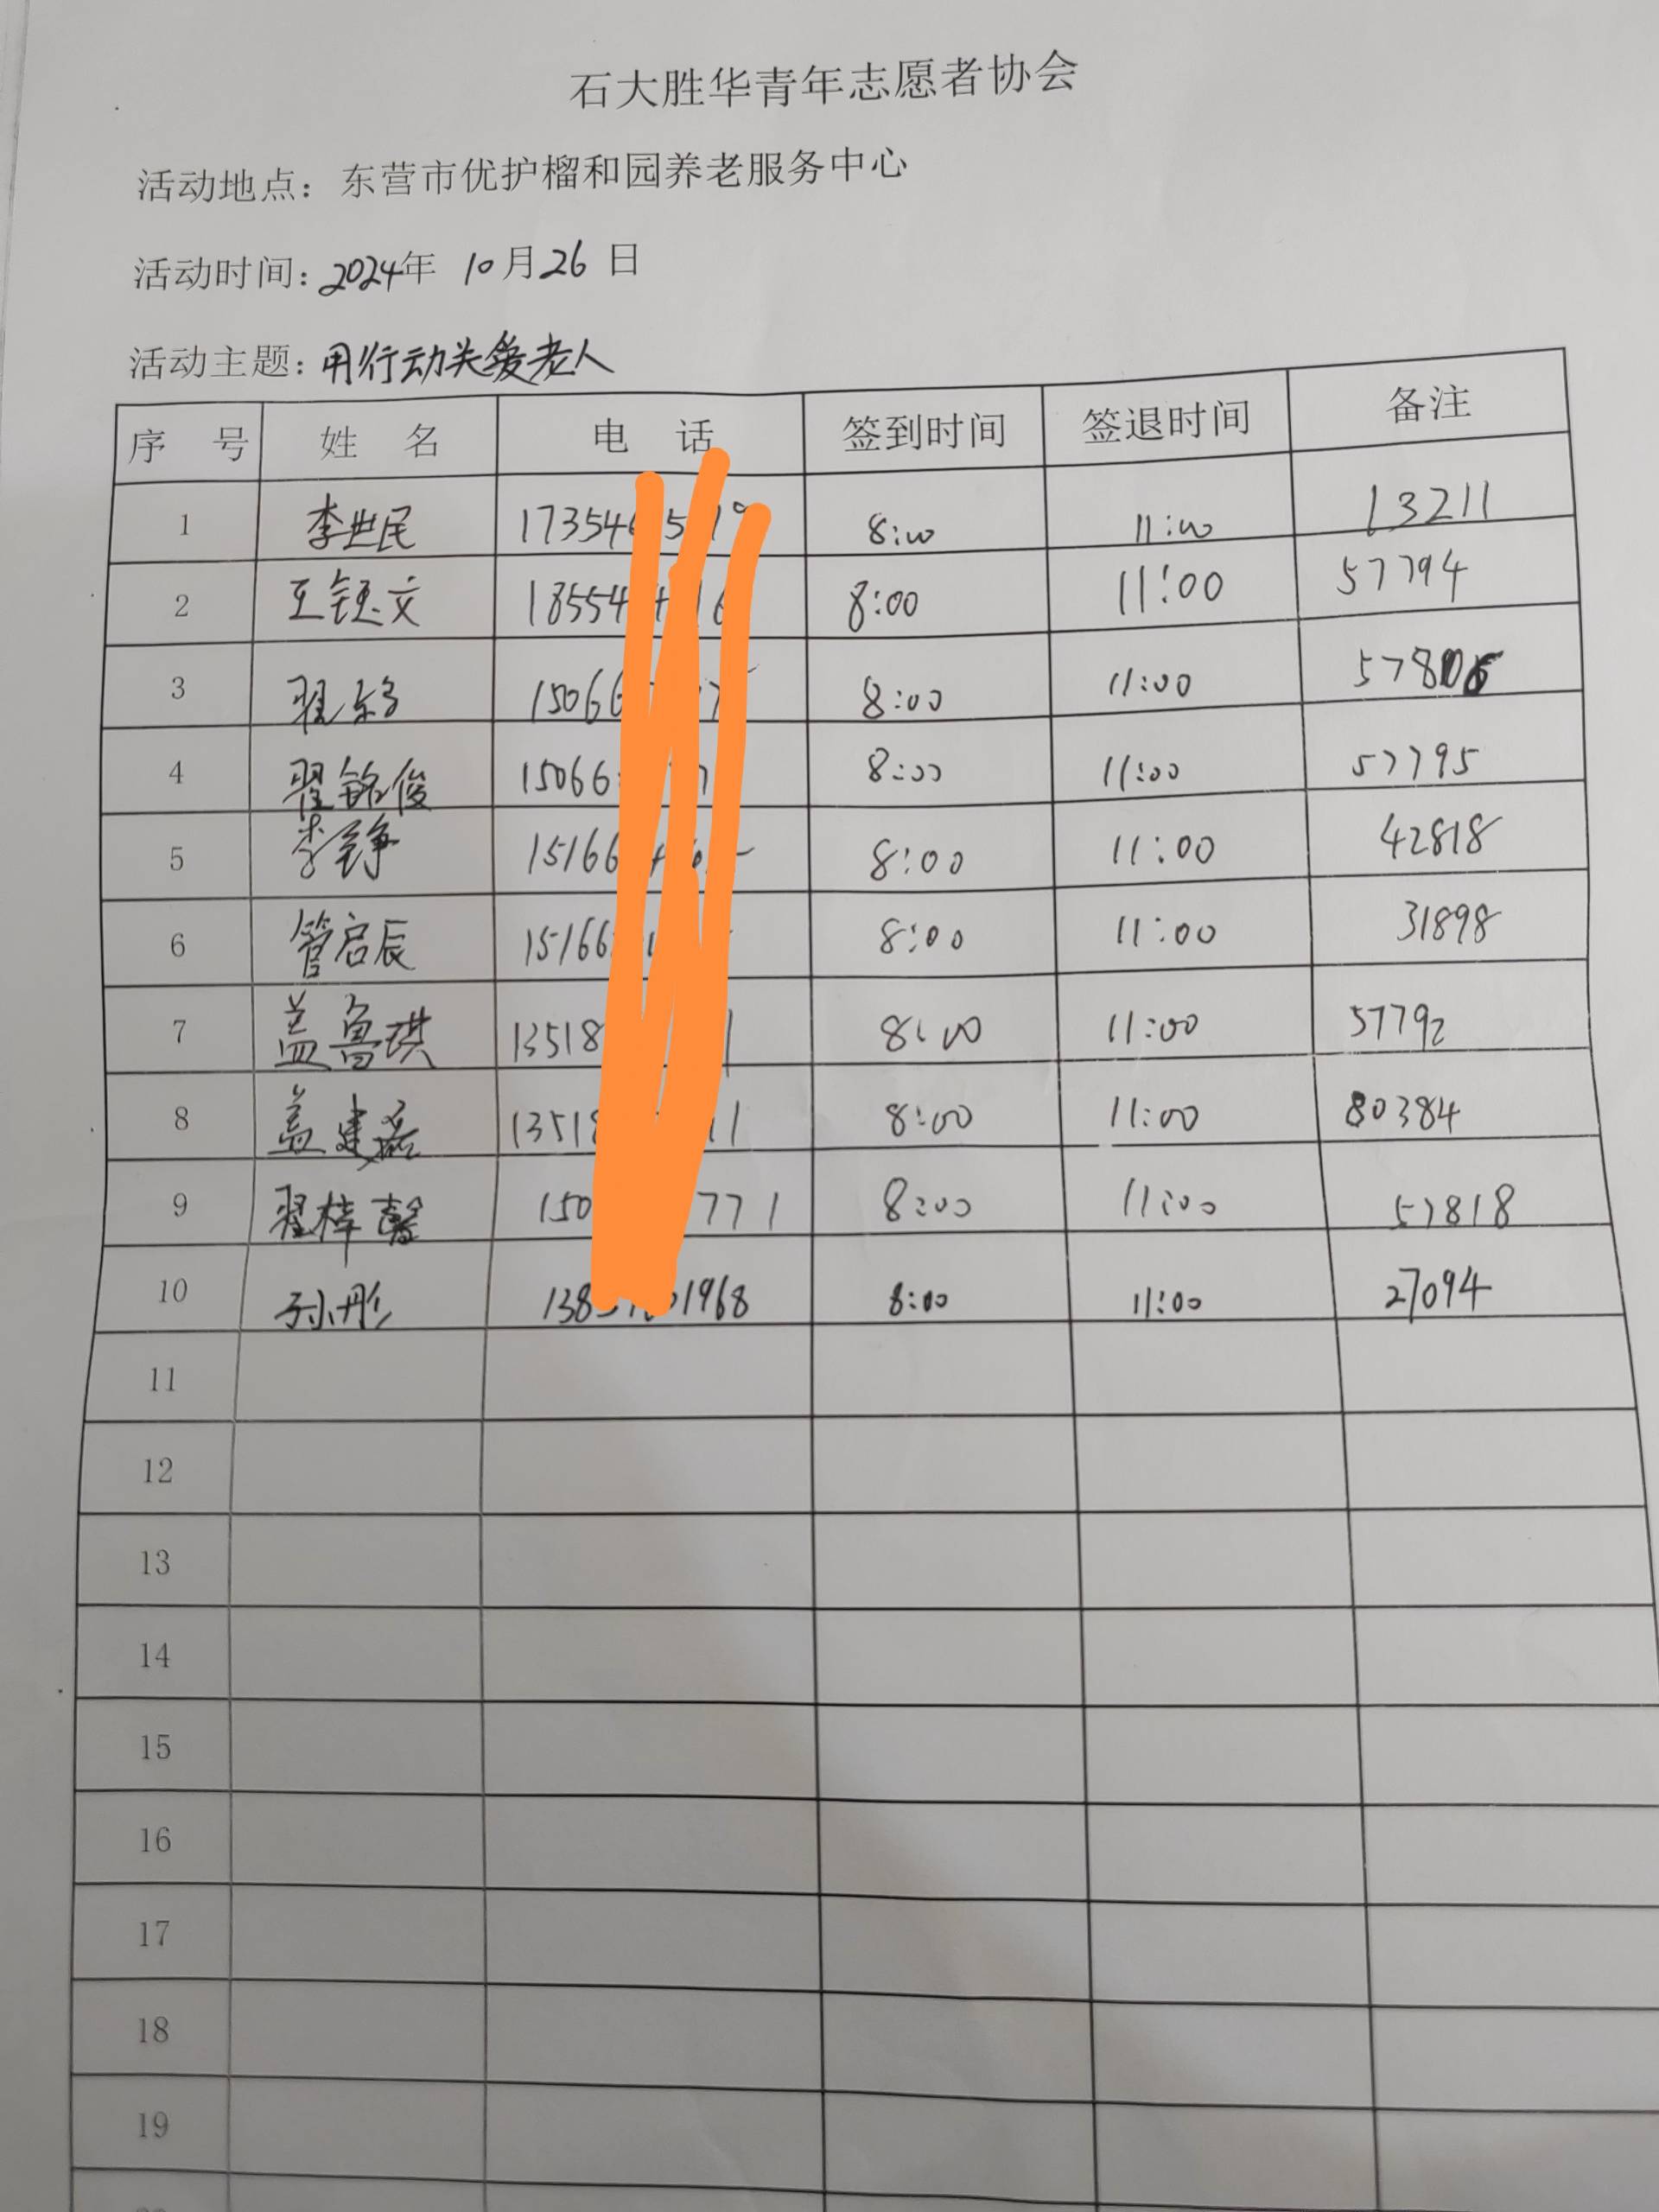 石大胜华青年志愿者协会
活动地点：东营市优护榴和园养老服务中心
活动时间：2024年 10月26 日
活动主题：用行动关爱老人
序 号 姓 名 电 话 签到时间 签退时间 备注
1 李世民 8:00 11:00 13211
2 王钰文 8:00 11:00 57794
3 8:00 11:00
4 翟铭俊 8:00 11:00 57795
5 李铮 8:00 11:00 42818
6 管启辰 8:00 11:00 31898
7 盖鲁琪 8:00 11:00 57792
8 盖建磊 8:00 11:00 80384
9 翟梓馨 8:00 11:00 57818
10 孙彤 8:00 11:00 27094
11
12
13
14
15
16
17
18
19